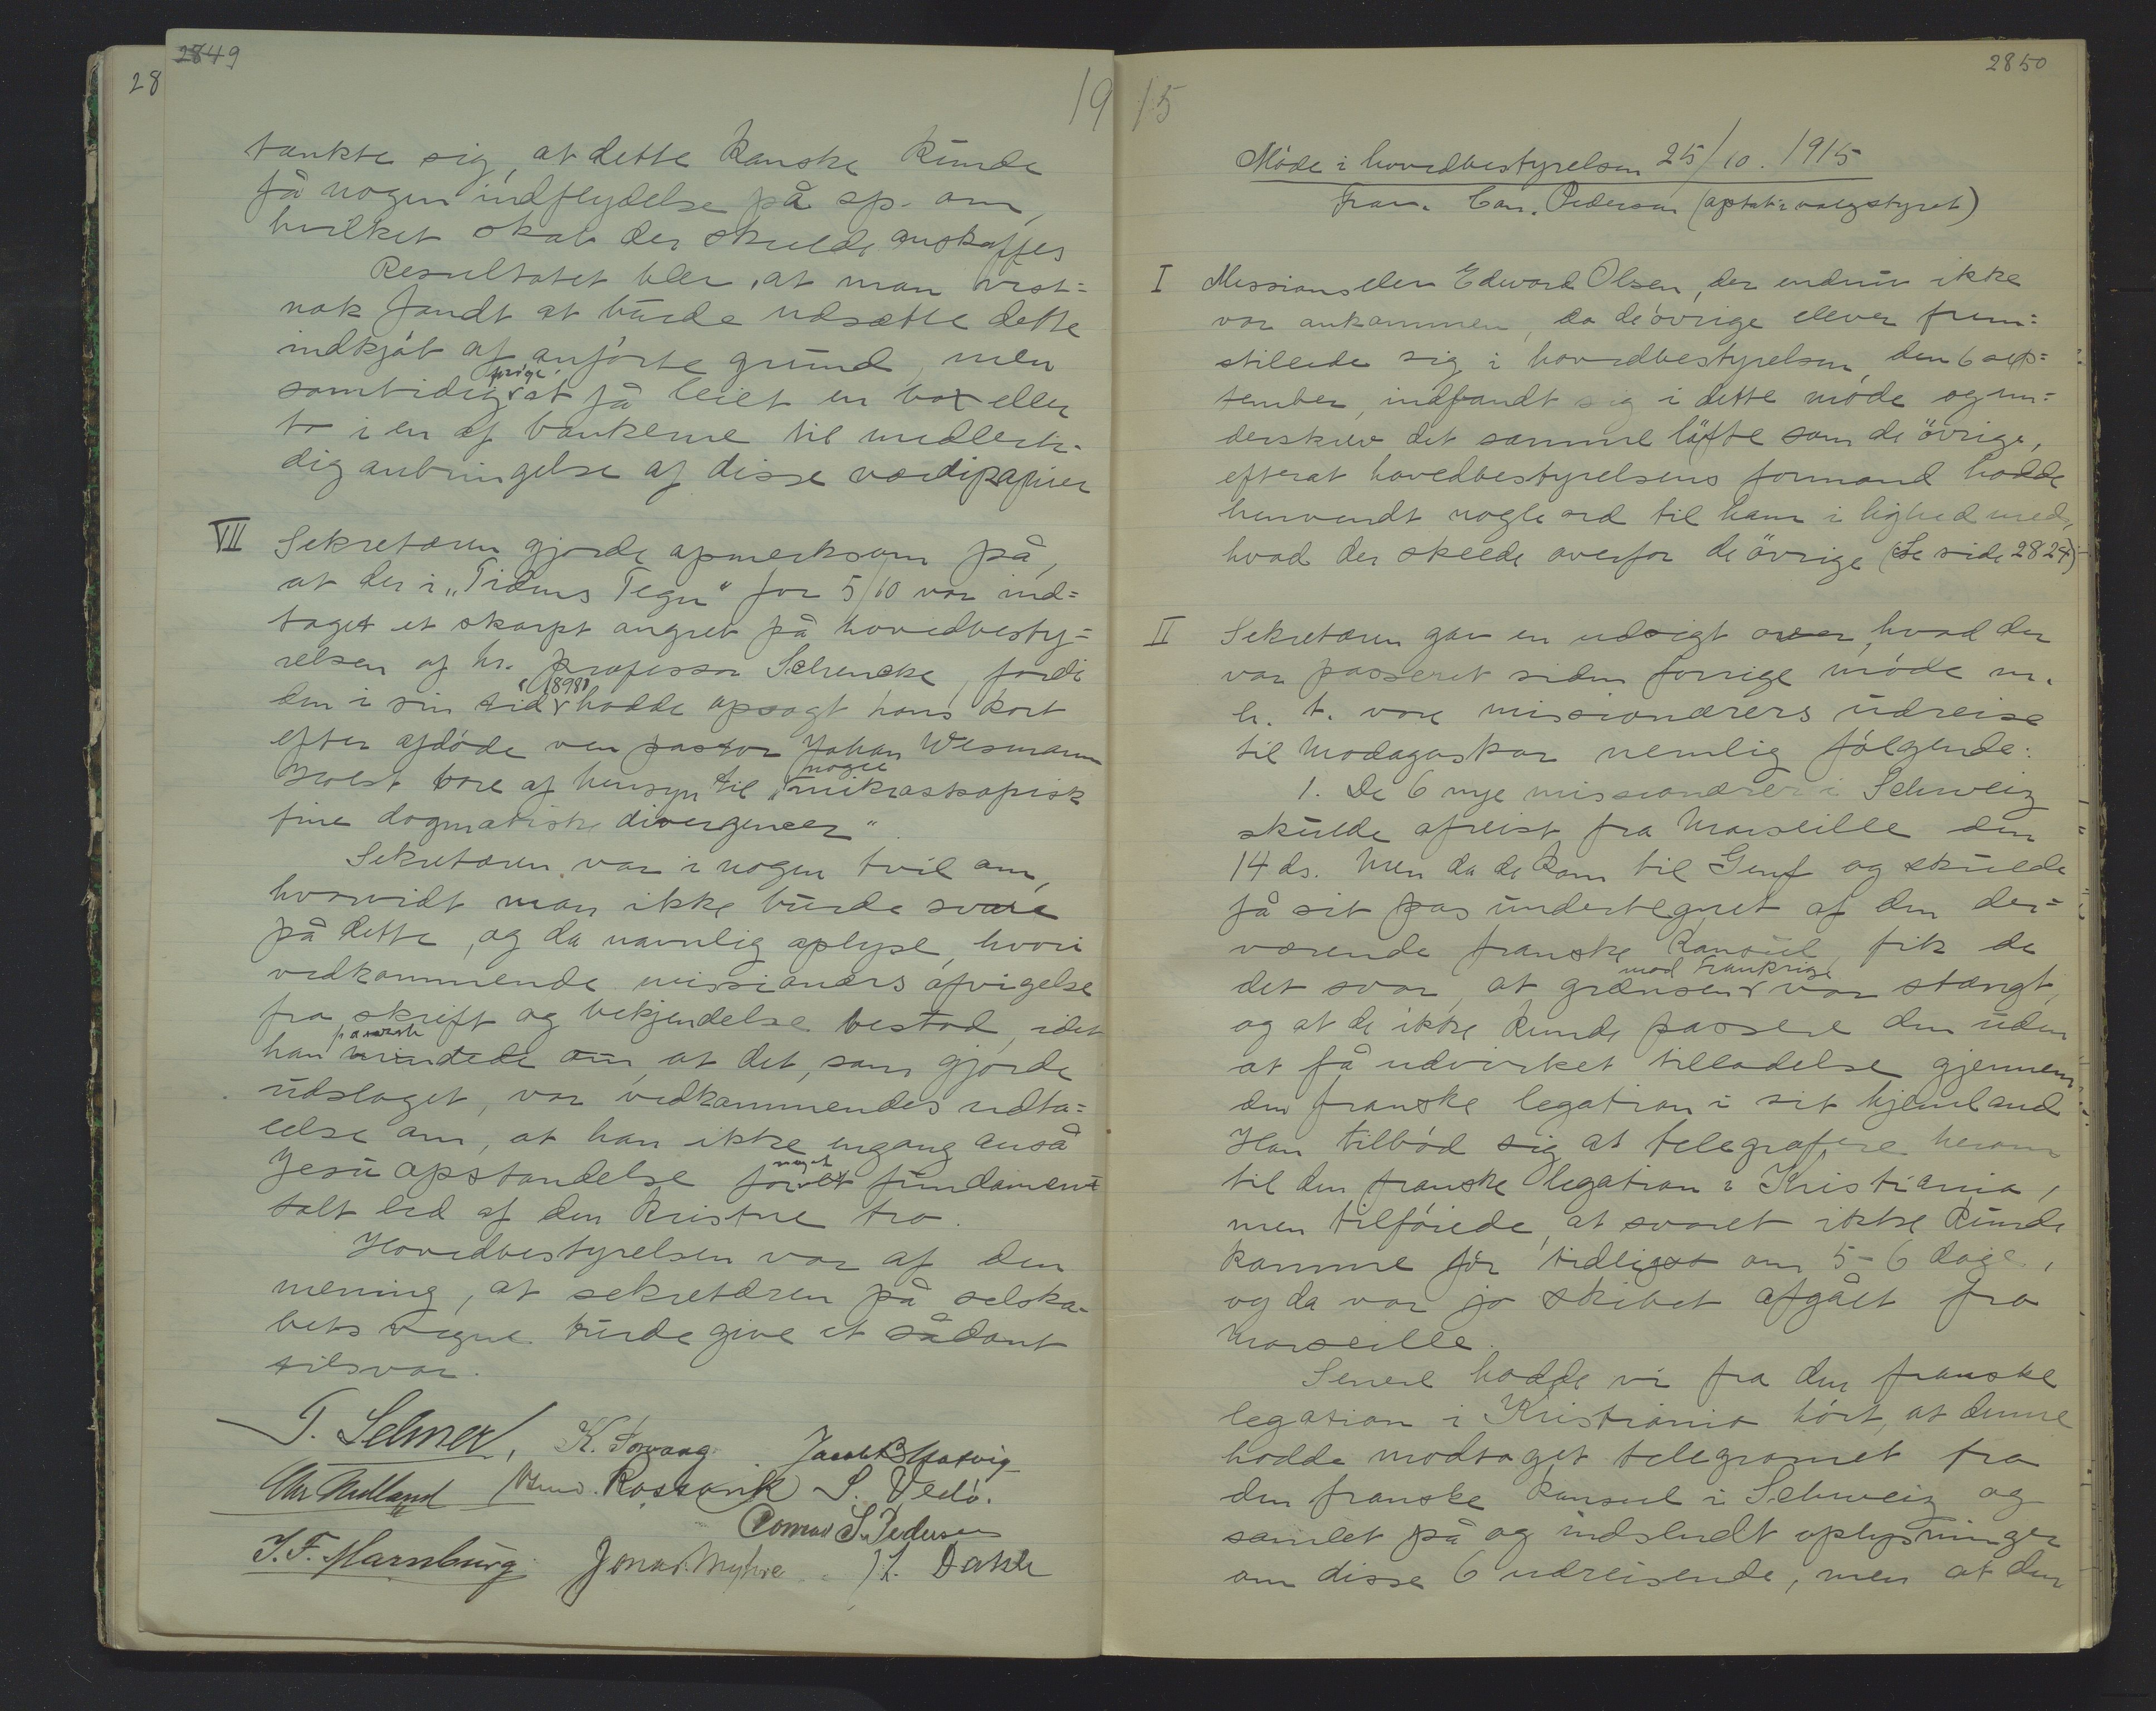 2849
28
19
tænkte sig, at dette kanske kunde
få nogen indflydelse på sp. om,
hvilket skab der skulde anskaffes
Resultatet blev, at man vist=
nok fandt at burde udsætte dette
indkjøb af anførte grund, men
samtidig prøge at få leiet en box eller
to i en af bankerne til midlerti-
dig anbringelse af disse værdipapirer
VII Sekretæren gjorde opmerksom på,
at der i „Tidens Tegn" for 5/10 var ind=
taget et skarpt angreb på hovedbesty=
relsen af hr. professor Schencke, fordi
den i sin tid (1898) hadde opsagt hans kort
efter afdøde ven pastor Johan Wesmann
Holst bare af hensyn til „nogle mikroskopisk
fine dogmatiske divergencer".
Sekretæren var i nogen tvil om,
hvorvidt man ikke burde svare
på dette, og da navnlig oplyse, hvori
vedkommende missionærs afvigelse
fra skrift og bekjendelse bestod, idet
han mindede om, at det, som gjorde
udslaget, var vedkommendes udta=
lelse om, at han ikke engang anså
Jesu opstandelse for noget fundamen=
talt led af den kristne tro.
Hovedbestyrelsen var af den
mening, at sekretæren på selska-
bets vegne burde give et sådant
tilsvar.
T. Selmer, K. Torvang Jacob B Natvig
Chr Midland Rossavik S. Vedø.
Conrad S. Pedersen
J. F. Marnburg Jonas Myhre L. Dahle
2850
15
Møde i hovedbestyrelsen 25/10. 1915
Frav. Con. Pedersen (optat i valgstyret)
I Missionselev Edward Olsen, der endnu ikke
var ankommen, da de øvrige elever frem=
stillede sig i hovedbestyrelsen den 6 sep=
tember, indfandt sig i dette møde og un=
derskrev det samme løfte som de øvrige,
efterat hovedbestyrelsens formand hadde
henvendt nogle ord til ham i lighed med,
hvad der skeede overfor de øvrige (Se side 2824)
II Sekretæren gav en udsigt over, hvad der
var passeret siden forrige møde m.
h. t. vore missionærers udreise
til Madagaskar nemlig følgende:
1. De 6 nye missionærer i Schweiz
skulde afreist fra Marseille den
14 ds. Men da de kom til Genf og skulde
få sit pas undertegnet af den der=
værende franske konsul, fik de
det svar, at grænsen mod Frankrige var stængt,
og at de ikke kunde passere den uden
at få udvirket tilladelse gjennem
den franske legation i sit hjemland
Han tilbød sig at telegrafere herom
til den franske legation i Kristiania,
men tilføiede, at svaret ikke kunde
komme før tidligst om 5-6 dage,
og da var jo skibet afgået fra
Marseille.
Senere hadde vi fra den franske
legation i Kristiania hørt, at denne
hadde modtaget telegramet fra
den franske konsul i Schweiz og
samlet på og indsendt oplysninger
om disse 6 udreisende, men at den